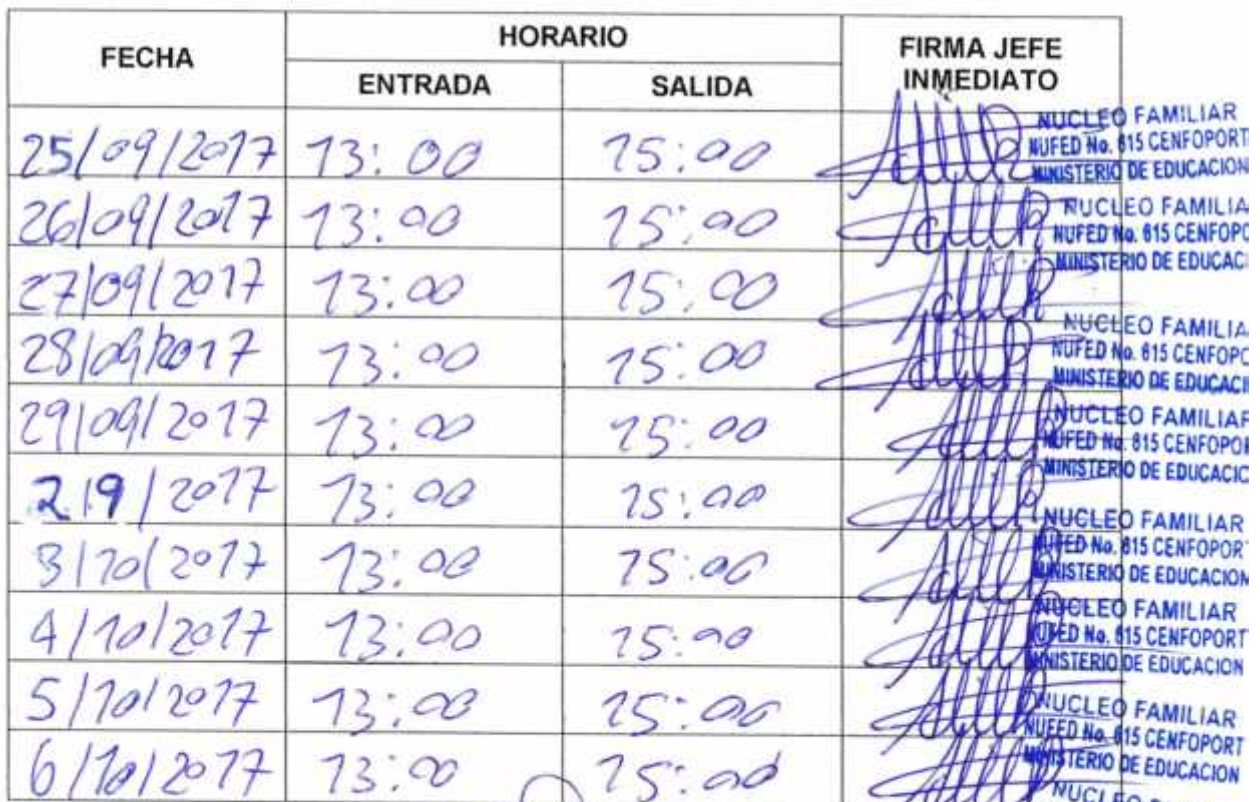 FECHA HORARIO FIRMA JEFE INMEDIATO
ENTRADA SALIDA
25/09/2017 13:00 15:00
NUCLEO FAMILIAR
NUFED No. 615 CENFOPORT
MINISTERIO DE EDUCACION
26/09/2017 13:00 15:00
NUCLEO FAMILIA
NUFED No. 615 CENFOPO
MINISTERIO DE EDUCACI
27/09/2017 13:00 15:00
28/09/2017 13:00 15:00
NUCLEO FAMILIA
NUFED No. 615 CENFOPO
MINISTERIO DE EDUCACI
29/09/2017 13:00 15:00
NUCLEO FAMILIAR
NUFED No. 615 CENFOPOR
MINISTERIO DE EDUCACIO
2/9/2017 13:00 15:00
NUCLEO FAMILIAR
NUFED No. 615 CENFOPORT
MINISTERIO DE EDUCACION
3/10/2017 13:00 15:00
4/10/2017 13:00 15:00
NUCLEO FAMILIAR
NUFED No. 615 CENFOPORT
MINISTERIO DE EDUCACION
5/10/2017 13:00 15:00
NUCLEO FAMILIAR
NUFED No. 615 CENFOPORT
MINISTERIO DE EDUCACION
6/10/2017 13:00 15:00
NUCLEO